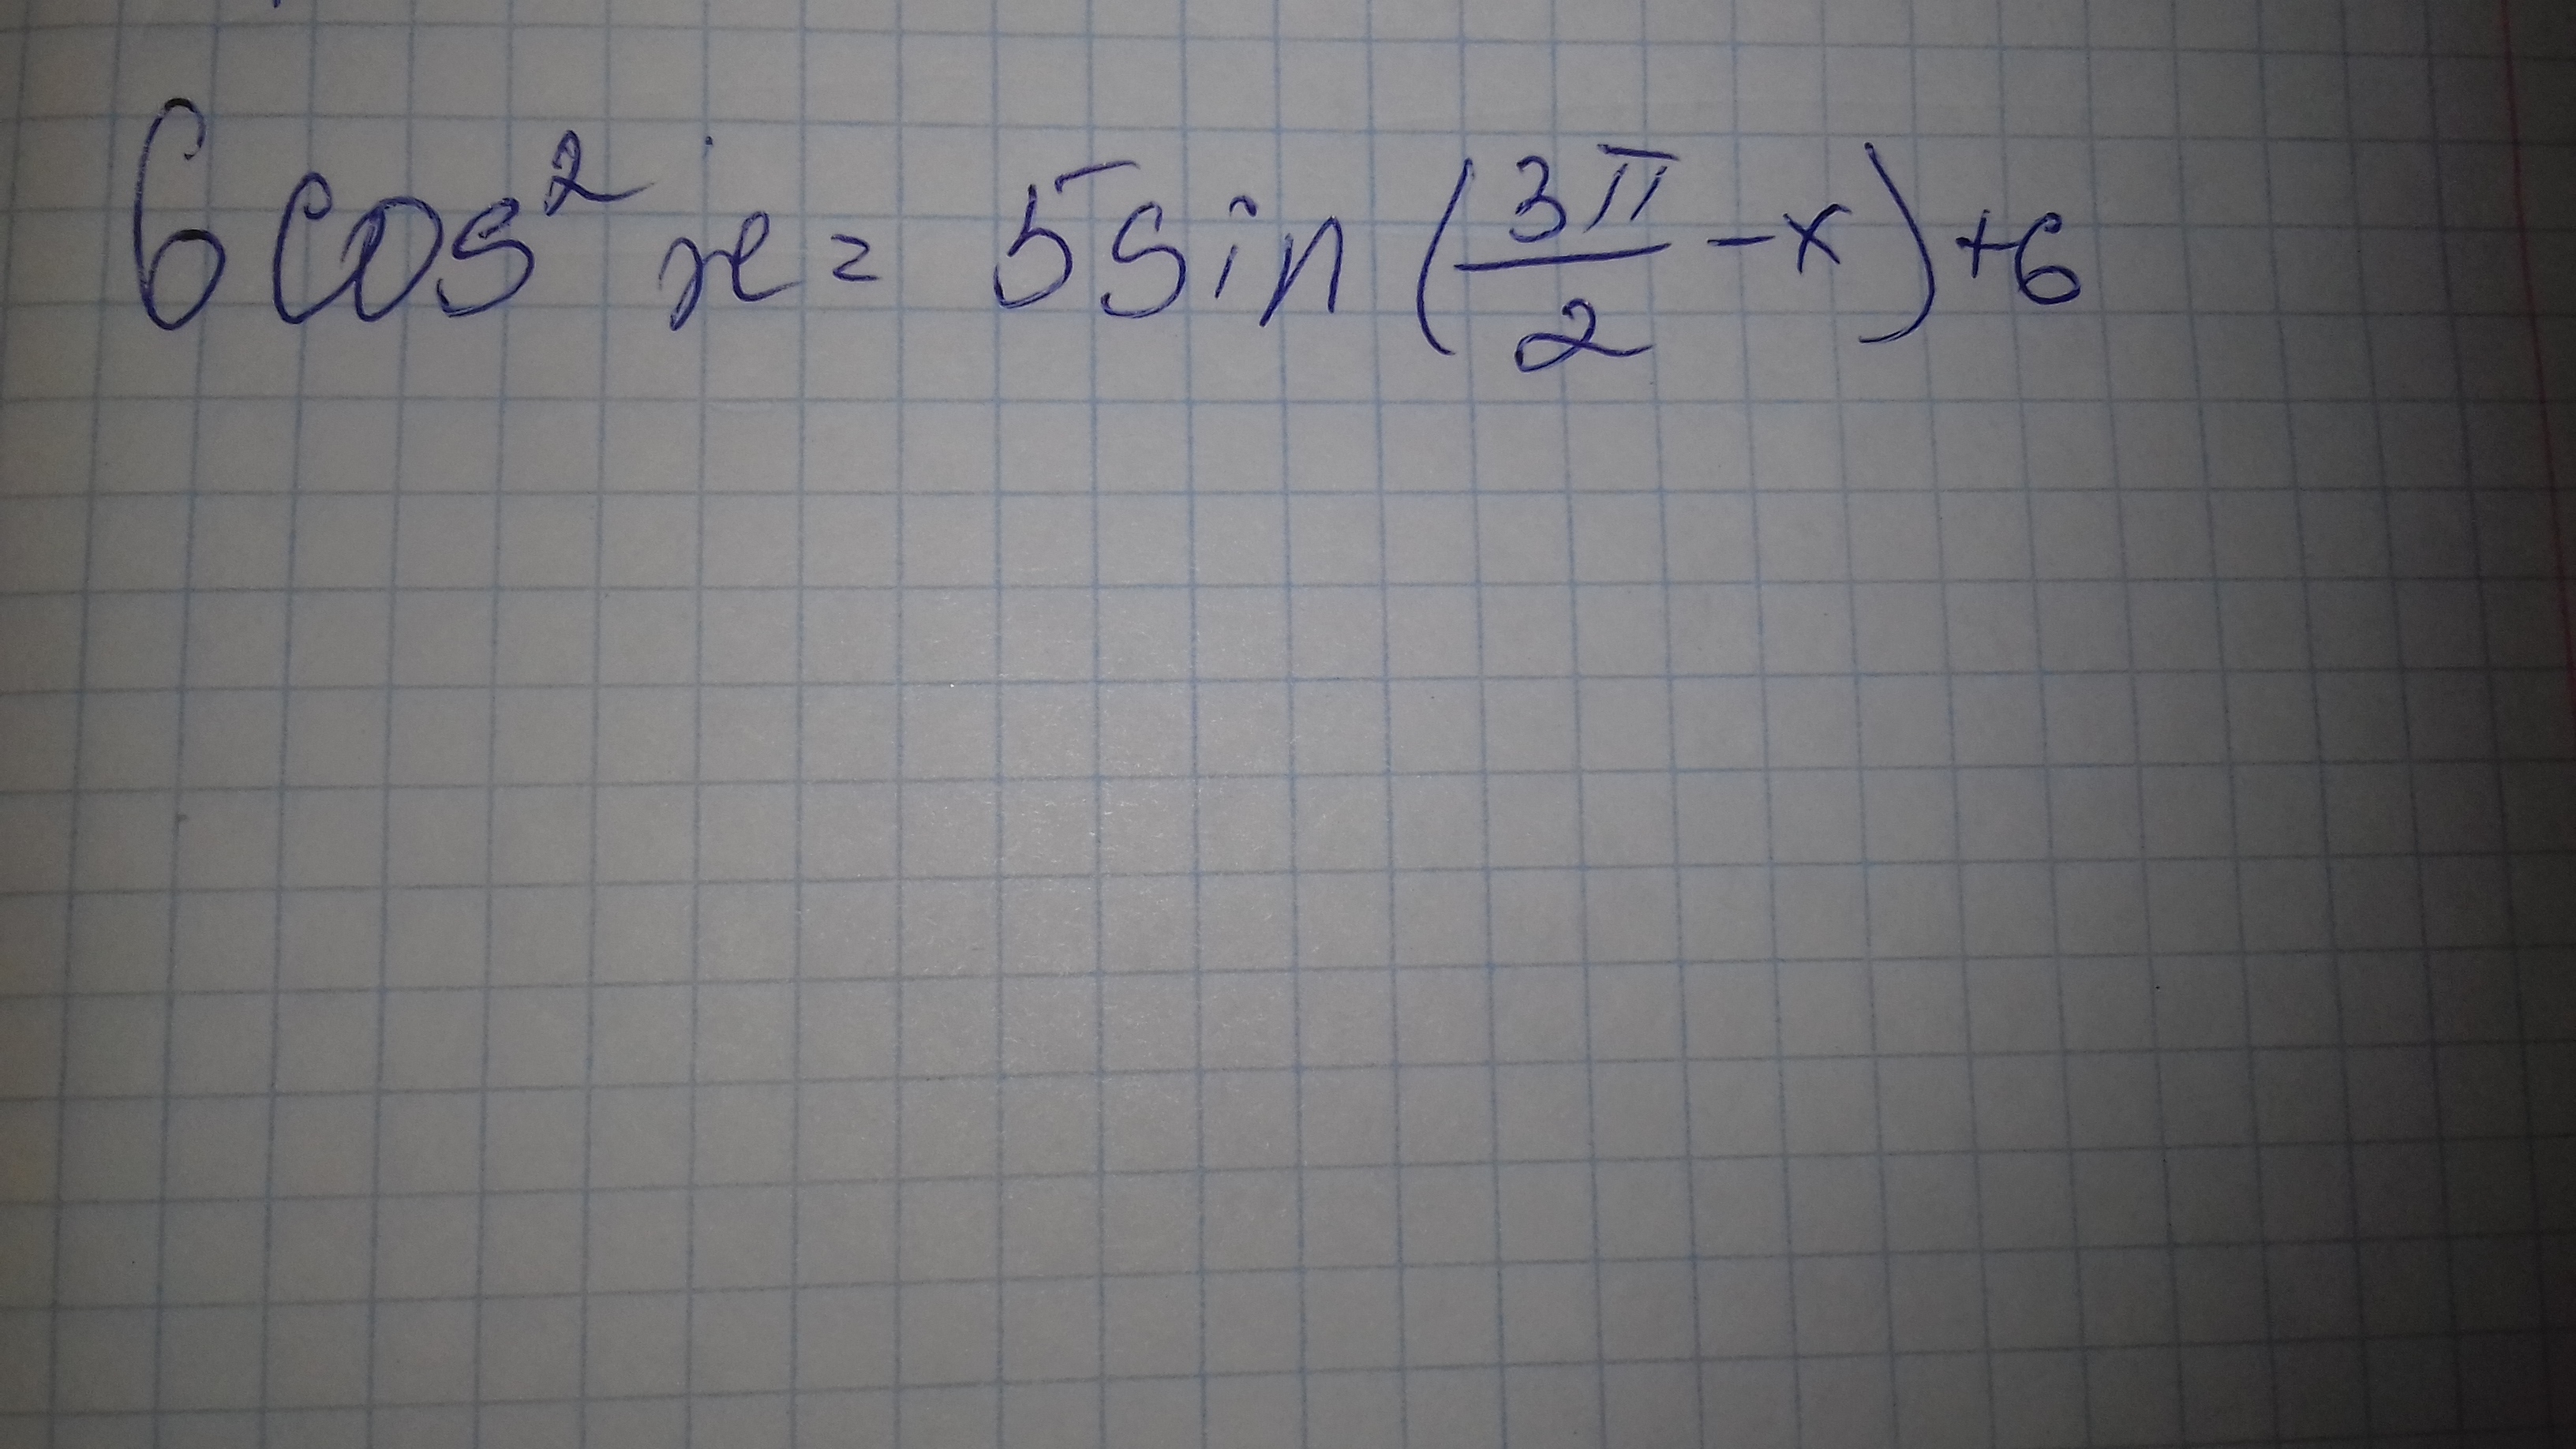 6 cos² x = 5 sin (3π/2 - x) + 6